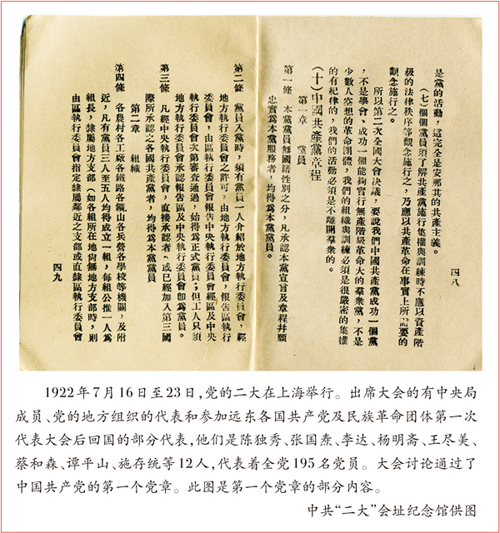 四八
是黨的活動，這完全是安那其的共產主義。
（七）個個黨員須了解共產黨施行集權與訓練時不應以資產階
級的法律秩序等觀念施行之，乃應以共產革命在事實上所需要的
觀念施行之。
所以第二次全國大會決議，要說我們中國共產黨成功一個黨
，不是學會，成功一個能夠實行無產階級革命大的羣衆黨，不是
少數人空想的革命團體，我們的組織與訓練必須是很嚴密的集權
的有紀律的，我們的活動必須是不離開羣衆的。
（十）中國共產黨章程
第一章 黨員
第一條 本黨黨員無國籍性別之分，凡承認本黨宣言及章程幷願
忠實爲本黨服務者，均得爲本黨黨員。
四九
第二條 黨員入黨時，須有黨員一人介紹於地方執行委員會，經
地方執行委員會之許可，由地方執行委員會報告區執行
委員會，由區執行委員會報告中央執行委員會經區及中央
執行委員會次第審查通過，始得爲正式黨員；但工人只須
地方執行委員會承認報告區及中央執行委員會卽爲黨員。
第三條 凡經中央執行委員會直接承認者，或已經加入第三國
際所承認之各國共產黨者，均得爲本黨黨員
第二章 組織
第四條 各農村各工廠各鐵路各鑛山各兵營各學校等機關，及附
近，凡有黨員三人至五人均得成立一組，每組公推一人爲
組長，隸屬地方支部（如各組所在地尚無地方支部時，則
由區執行委員會指定隸屬鄰近之支部或直隸區執行委員會
1922年7月16日至23日，党的二大在上海举行。出席大会的有中央局
成员、党的地方组织的代表和参加远东各国共产党及民族革命团体第一次
代表大会后回国的部分代表，他们是陈独秀、张国焘、李达、杨明斋、王尽美、
蔡和森、谭平山、施存统等12人，代表着全党195名党员。大会讨论通过了
中国共产党的第一个党章。此图是第一个党章的部分内容。
中共“二大”会址纪念馆供图